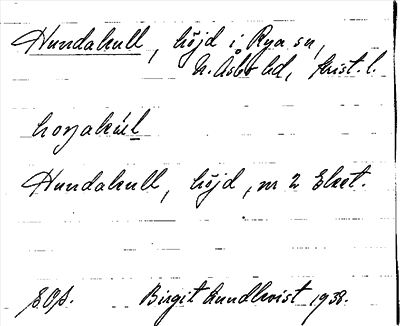 Hundakull, höjd i Rya sn,
N. Åsbo hd, Krist. l.
Hundakull, höjd, nr 2 Eket.
Birgit Lundkvist 1938.